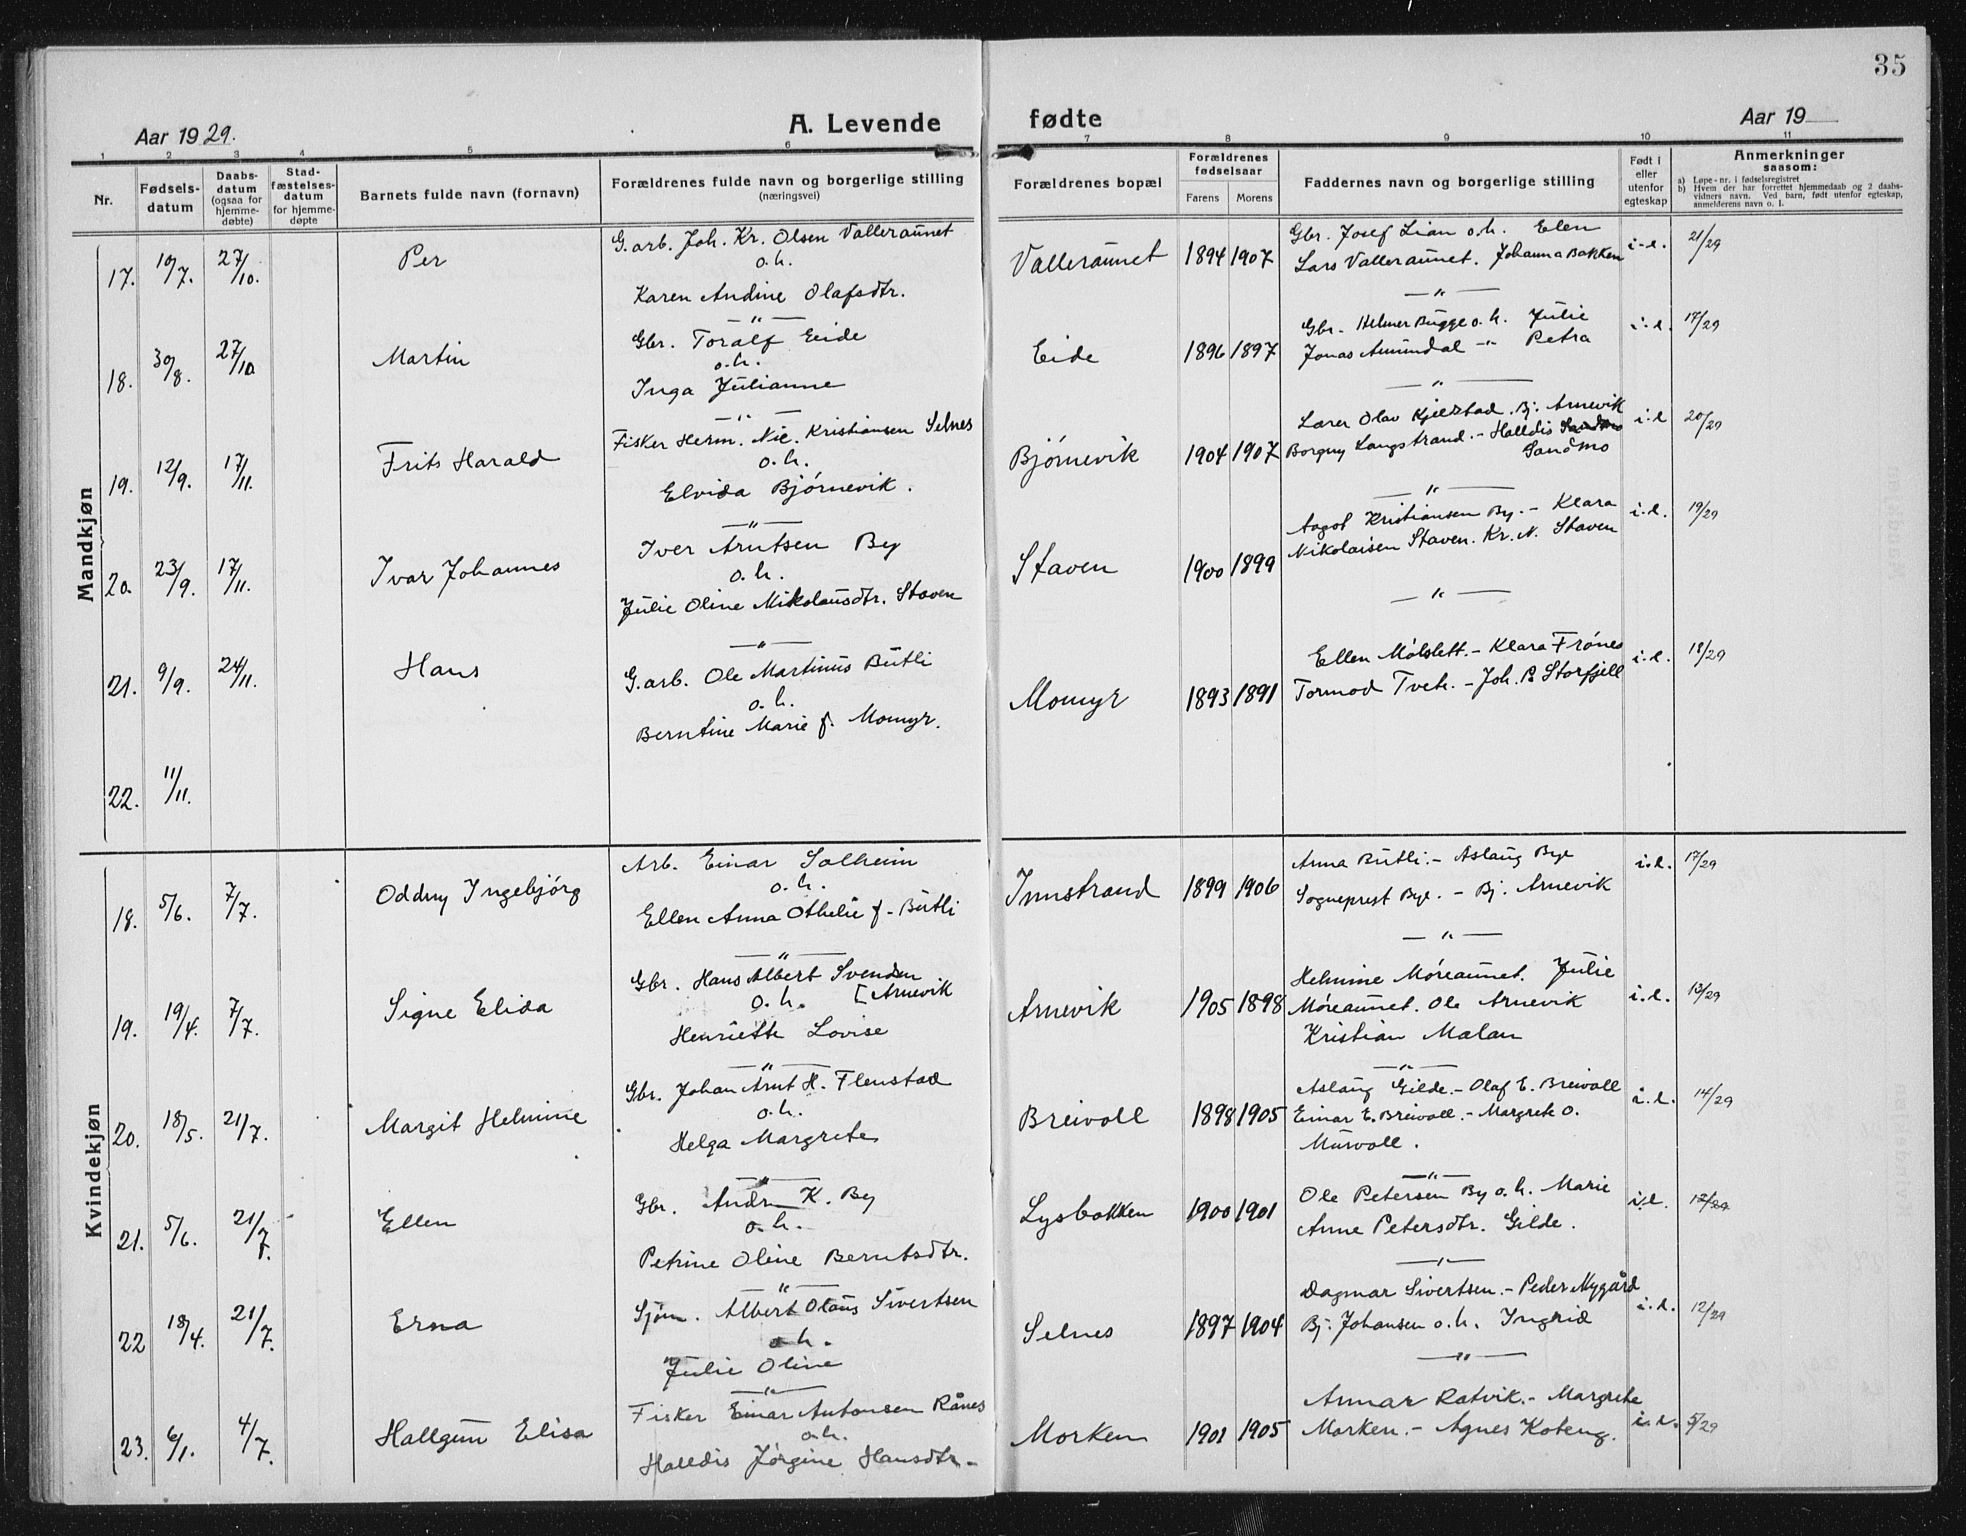 35
Aar 1929.
A. Levende fødte
Aar 19
1 2 3 4 5 6 7 8 9 10 11
Nr.
Fødsels-
datum
Daabs-
datum
(ogsaa for
hjemme-
døbte)
Stad-
fæstelses-
datum
for hjemme-
døpte
Barnets fulde navn (fornavn)
Forældrenes fulde navn og borgerlige stilling
(næringsvei)
Forældrenes bopæl
Forældrenes
fødselsaar
Farens Morens
Faddernes navn og borgerlige stilling
Født i
eller
utenfor
egteskap
Anmerkninger
saasom:
a) Løpe-nr. i fødselsregistret
b) Hvem der har forrettet hjemmedaab og 2 daabs-
vidners navn. Ved barn, født utenfor egteskap,
anmelderens navn o. l.
Mandkjøn
17. 10/7. 27/10. Per
G.arb. Joh. Kr. Olsen Valleraunet
o.h.
Karen Andine Olafsdtr.
Valleraunet 1894 1907
Gbr. Josef Lian o.h. Elen
Lars Valleraunet. Johanna Bakken
i.e. 21/29
18. 30/8. 27/10 Martin
— " —
Gbr. Toralf Eide
o.h.
Inga Julianne
Eide 1896 1897
— " —
Gbr. Helmer Bugge o.h. Julie
Jonas Amundal -"- Petra
i.e. 17/29
19. 12/9. 17/11. Frits Harald
— " —
Fisker Herm. Nic. Kristiansen Selnes
o.h.
Elvida Bjørnevik.
Bjørnevik 1904 1907
— " —
Lærer Olav Kjelstad. Bj. Arnevik
Borguy Langstrand. - Halldis
Sandmo
i.e 20/29
20. 23/9. 17/11. Ivar Johannes
— " —
Iver Arntsen By
o.h.
Julie Oline Nikolausdtr. Staven
Staven 1900 1899
— " —
Aagot Kristiansen By. - Klara
Nikolaisen Staven. Kr. N. Staven
i.e. 19/29
21. 9/9. 24/11. Hans
— " —
G.arb. Ole Martinus Butli
o.h.
Berntine Marie f. Momyr.
Momyr 1893 1891
— " —
Ellen Mølslett. - Klara Frønes
Tormod Tveh. - Joh. P. Storfjell
i.e. 18/29
22. 11/11.
Kvindekjøn
18. 5/6. 7/7. Oddny Ingebjørg
Arb. Einar Solheim
o.h.
Ellen Anna Othelie f. Butli
Innstrand 1899 1906
Anna Butli. - Aslaug Bye
Sogneprest Bye. - Bj. Arnevik
i.e. 17/29
19. 19/4. 7/7. Signe Elida
— " —
Gbr. Hans Albert Svendsn
o.h. [Arnevik
Henriette Lovise
Arnevik 1905 1898
— " —
Helmine Møreaunet. Julie
Møreaunet. Ole Arnevik
Kristian Malan
i.e. 13/29
20. 18/5. 21/7. Margit Helmine
— " —
Gbr. Johan Arnt H. Flenstad
o.h.
Helga Margrete
Breivoll 1898 1905
— " —
Aslaug Gilde. - Olaf E. Breivoll
Einar E. Breivoll. - Margrete O.
Murvoll.
i.e. 14/29
21. 5/6. 21/7. Ellen
— " —
Gbr. Andr. K. By
o.h.
Petrine Oline Berntsdtr.
Lysbakken 1900 1901
— " —
Ole Petersen By o.h. Marie
Anne Petersdtr. Gilde.
i.e.
22 18/4. 21/7. Erna
— " —
Sjøm. Albert Olaus Sivertsen
o.h.
Julie Oline
Selnes 1897 1904
— " —
Dagmar Sivertsen. - Peder Nygård
Bj. Johansen o.h. Ingrid
i.e. 12/29
23. 6/1. 4/7. Hallgun Elisa
— " —
Fisker Einar Antonsen Rånes
o.h.
Halldis Jørgine Hansdtr.
Morken 1901 1905
— " —
Annar Ratvik. - Margrete
Morken. - Agnes Koteng.
i.e. 5/29